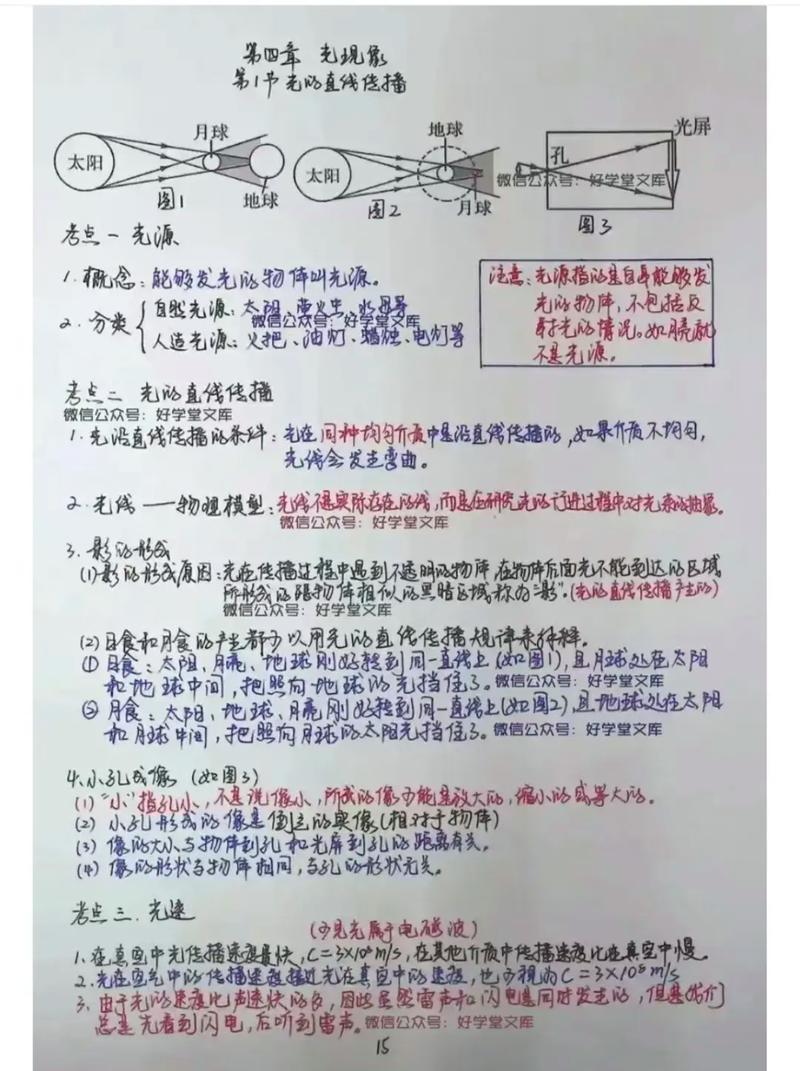 第四章 光现象
第1节 光的直线传播
太阳 月球 地球 图1
太阳 地球 月球 图2
孔 光屏 图3
微信公众号：好学堂文库
考点一 光源
1. 概念：能够发光的物体叫光源。
2. 分类
自然光源：太阳、萤火虫、水母等
微信公众号：好学堂文库
人造光源：火把、油灯、蜡烛、电灯等
注意：光源指的是自身能够发
光的物体，不包括反
射光的情况。如月亮就
不是光源。
考点二 光的直线传播
微信公众号：好学堂文库
1. 光沿直线传播的条件：光在同种均匀介质中是沿直线传播的，如果介质不均匀，
光线会发生弯曲。
2. 光线——物理模型：光线不是实际存在的线，而是在研究光的行进过程中对光束的抽象。
微信公众号：好学堂文库
3. 影的形成
(1) 影的形成原因：光在传播过程中遇到不透明的物体，在物体后面光不能到达的区域
所形成的跟物体相似的黑暗区域称为“影”。(光的直线传播产生的)
微信公众号：好学堂文库
(2) 日食和月食的产生都可以用光的直线传播规律来解释。
① 日食：太阳、月亮、地球刚好转到同一直线上(如图1)，且月球处在太阳
和地球中间，把照向地球的光挡住了。微信公众号：好学堂文库
② 月食：太阳、地球、月亮刚好转到同一直线上(如图2)，且地球处在太阳
和月球中间，把照向月球的太阳光挡住了。微信公众号：好学堂文库
4. 小孔成像 (如图3)
(1) “小”指孔小，不是说像小，所成的像可能是放大的，缩小的或等大的。
(2) 小孔形成的像是倒立的实像(相对于物体)
(3) 像的大小与物体到孔和光屏到孔的距离有关。
(4) 像的形状与物体相同，与孔的形状无关。
考点三. 光速
(可见光属于电磁波)
1. 在真空中光传播速度最快，C=3×10⁸m/s，在其他介质中传播速度比在真空中慢。
2. 光在空气中的传播速度接近光在真空中的速度，也可视为C=3×10⁸m/s
3. 由于光的速度比声速快的多，因此虽然雷声和闪电是同时发生的，但是我们
总是先看到闪电，后听到雷声。微信公众号：好学堂文库
15